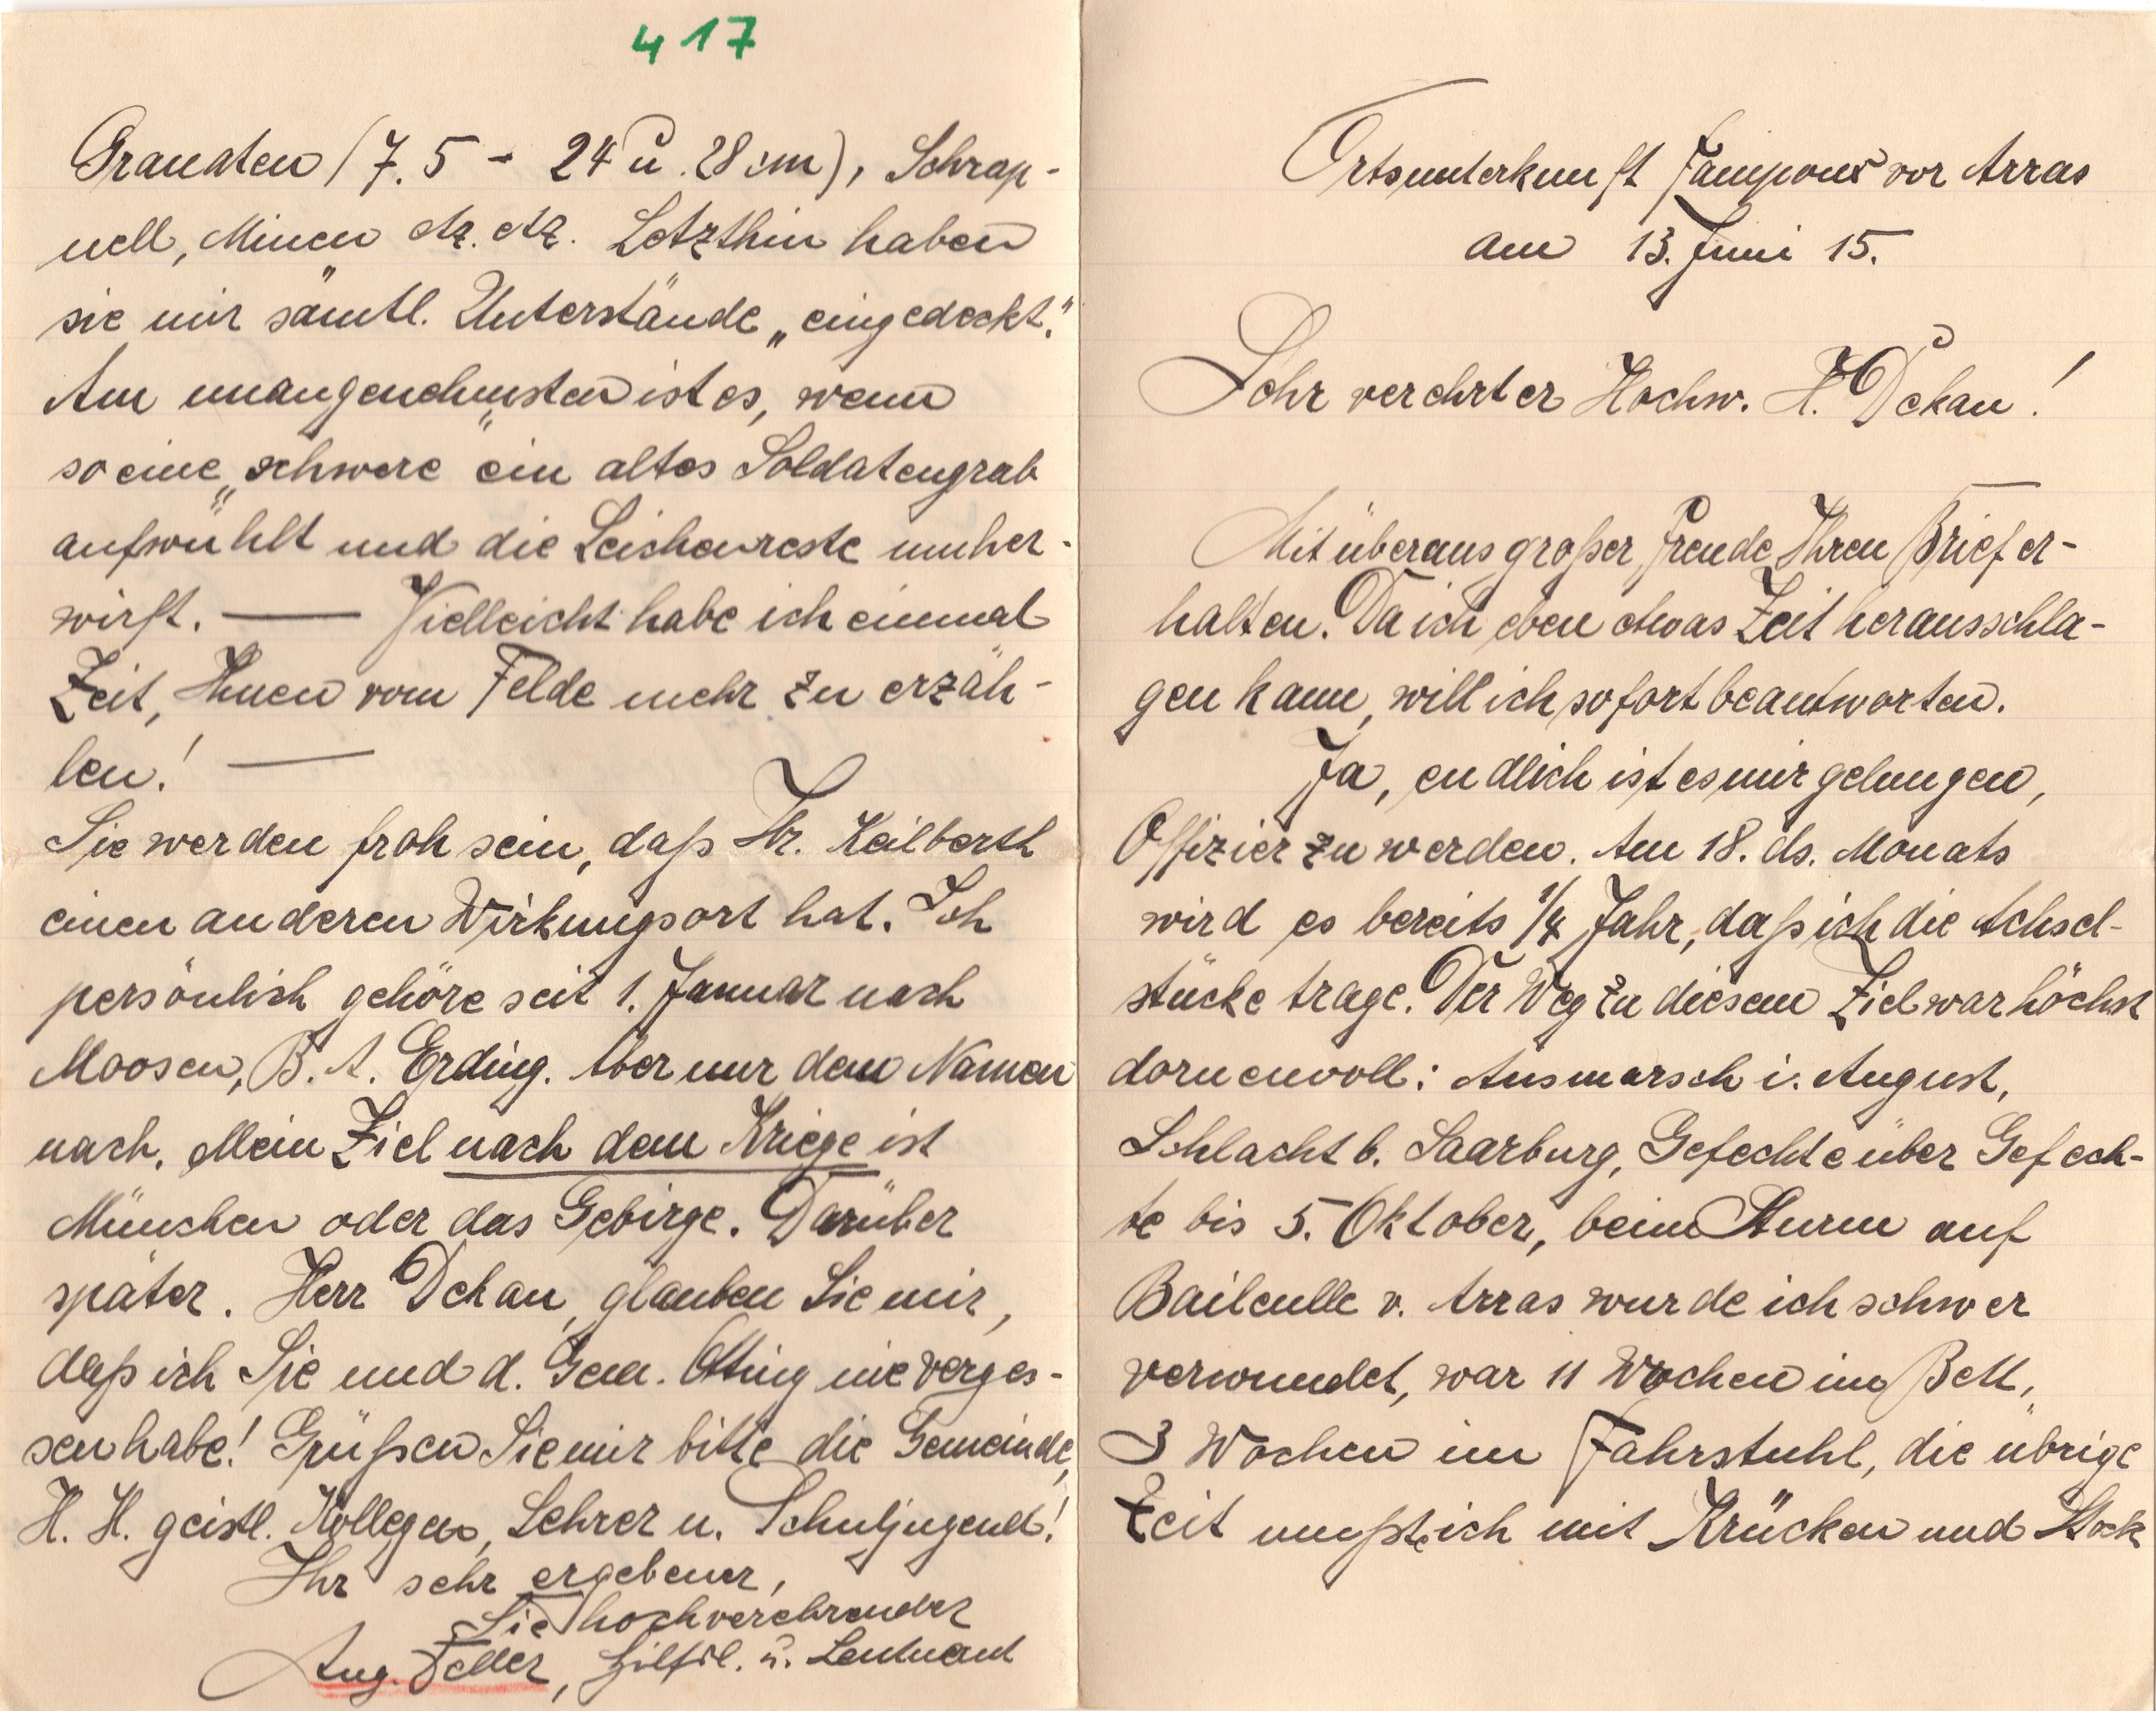 417
Granaten (7.5 - 24 u. 28 cm), Schrap-
nell, Minen etz. etz. Letzthin haben
sie mir sämtl. Unterstände „eingedeckt."
Am unangenehmsten ist es, wenn
so eine „schwere" ein altes Soldatengrab
aufwühlt und die Leichenreste umher-
wirft. — Vielleicht habe ich einmal
Zeit, Ihnen vom Felde mehr zu erzäh-
len! —
Sie werden froh sein, daß Hr. Keilberth
einen anderen Wirkungsort hat. Ich
persönlich gehöre seit 1. Januar nach
Moosen, B. A. Erding. Aber nur dem Namen
nach. Mein Ziel nach dem Kriege ist
München oder das Gebirge. Darüber
später. Herr Dekan, glauben Sie mir,
daß ich Sie und d. Gem. Otting nie verges-
sen habe! Grüßen Sie mir bitte die Gemeinde,
H. H. geistl. Kollegen, Lehrer u. Schuljugend!
Ihr sehr ergebener,
Sie hochverehrender
Aug. Feller, Hilfsl. u. Leutnant
Ortsunterkunft vor Arras
am 13. Juni 15.
Sehr verehrter Hochw. H. Dekan!
Mit überaus großer Freude Ihren Brief er-
halten. Da ich eben etwas Zeit herausschla-
gen kann, will ich sofort beantworten.
Ja, endlich ist es mir gelungen,
Offizier zu werden. Am 18. ds. Monats
wird es bereits 1/4 Jahr, daß ich die Achsel-
stücke trage. Der Weg zu diesem Ziel war höchst
dornenvoll: Ausmarsch i. August,
Schlacht b. Saarburg, Gefechte über Gefech-
te bis 5. Oktober, beim Sturm auf
Baileulle v. Arras wurde ich schwer
verwundet, war 11 Wochen im Bett,
3 Wochen im Fahrstuhl, die übrige
Zeit mußte ich mit Krücken und Stock